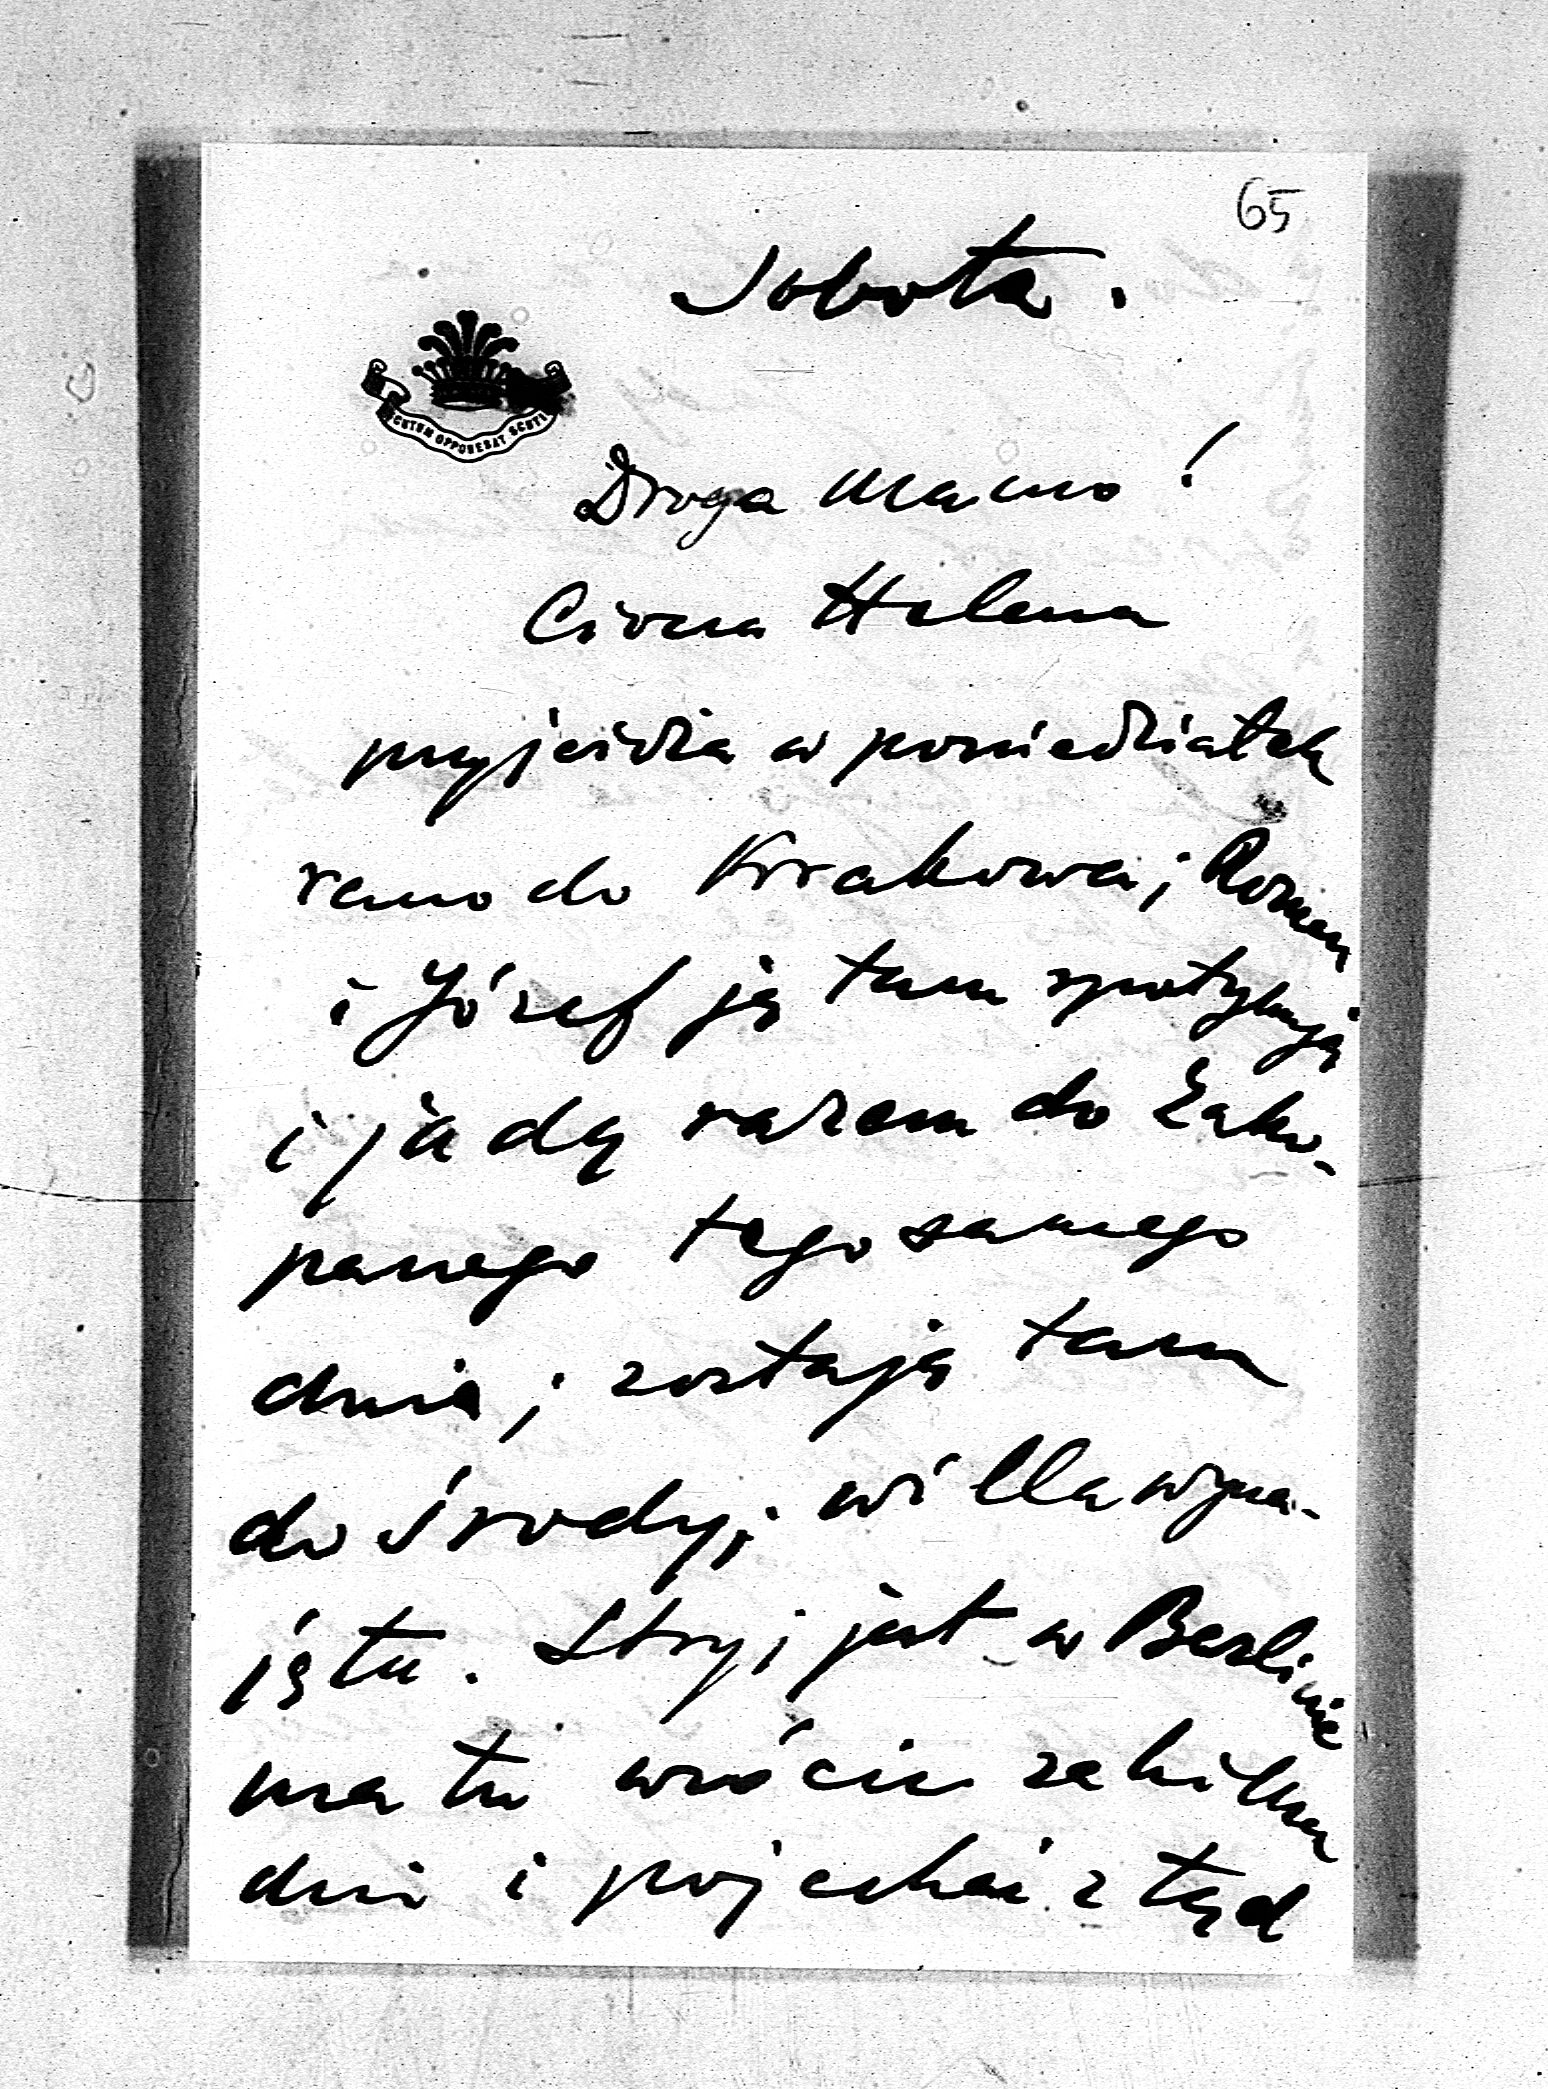 65
Sobota.
SCUTUM OPPONEBAT SCUTI
Droga Mamo!
Ciocia Helena
przyjeżdża w poniedziałek
rano do Krakowa; Roman
i Józef ją tam spotykają
i jadą razem do Zako-
panego tego samego
dnia; zostają tam
do środy; willa wyna-
jęta. Stryj jest w Berlinie
ma tu wrócić za kilka
dni i pojechać z tąd